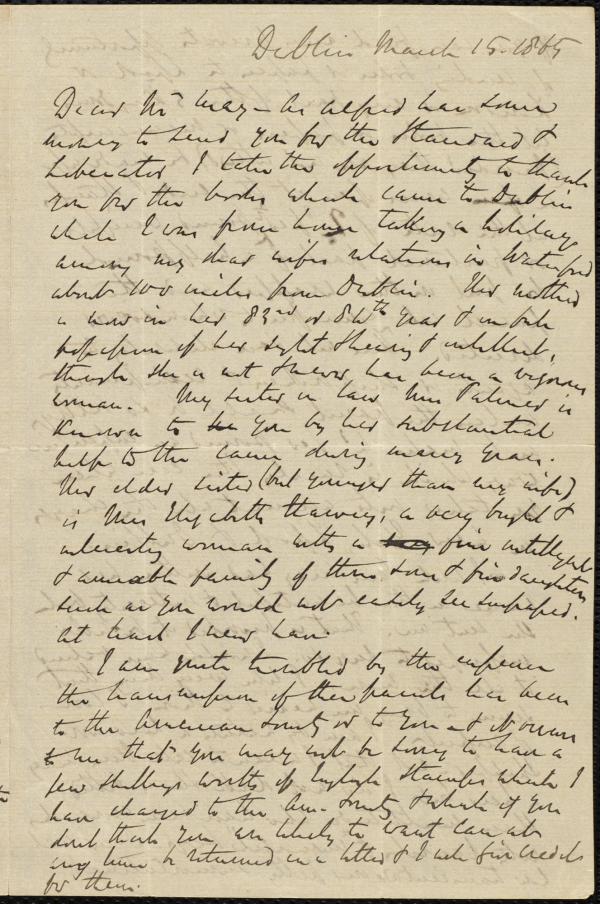 Dublin March 15. 1865
Dear Mr May - As Alfred has some
money to send you for the Standard &
Liberator I take the opportunity to thank
you for the books which came to Dublin
while I was from home taking a holiday
among my dear wife's relations in Waterford
about 100 miles from Dublin. Her mother
is now in her 83rd or 84th year & in full
possession of her sight & hearing & intellect,
though she is not & never has been a vigorous
woman. My sister in law Mrs Palmer is
known to you by her substantial
help to the cause during many years.
Her elder sister (but younger than my wife)
is Mrs Elizabeth Harvey, a very bright &
interesting woman with a fine intelligent
& amiable family of three sons & five daughters
such as you would not easily see surpassed.
At least I never have.
I am quite troubled by the expense
the transmission of these parcels has been
to the American Society or to you - & it occurs
to me that you may not be sorry to have a
few shillings worth of English Stamps which I
have charged to the Am. Society & which if you
don't think you are likely to want can at
any time be returned in a letter & I will give credit
for them.